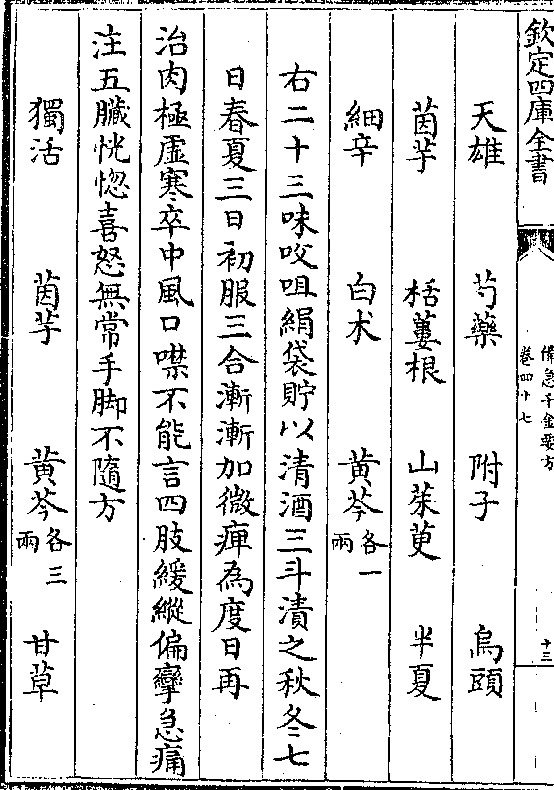 欽定四庫全書
備急千金要方
卷四十七
十三
天雄 芍藥 附子 烏頭
茵芋 栝蔞根 山茱萸 半夏
細辛 白朮 黄芩各一兩
右二十三味㕮咀絹袋貯以清酒三斗漬之秋冬七
日春夏三日初服三合漸漸加微痺為度日再
治肉極虛寒卒中風口噤不能言四肢緩縱偏攣急痛
注五臟恍惚喜怒無常手脚不隨方
獨活 茵芋 黄芩各三兩 甘草